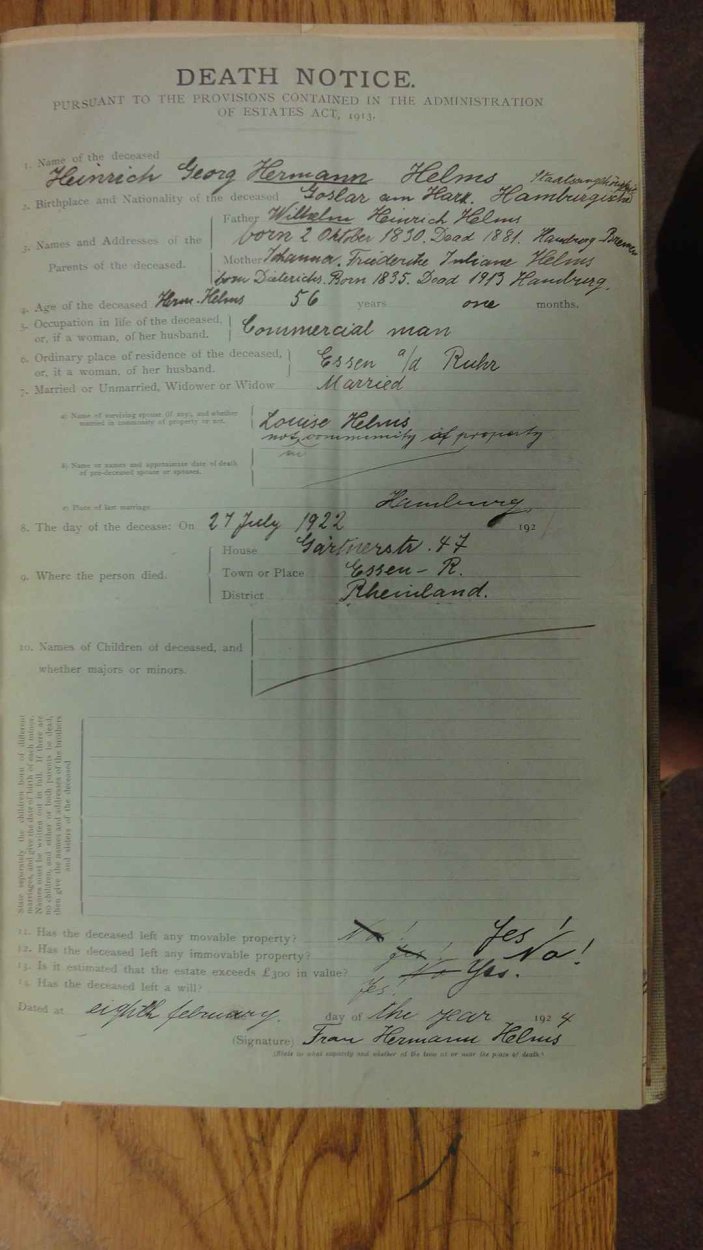 DEATH NOTICE.
PURSUANT TO THE PROVISIONS CONTAINED IN THE ADMINISTRATION
OF ESTATES ACT, 1913.
1. Name of the deceased
Heinrich Georg Hermann Helms
2. Birthplace and Nationality of the deceased Goslar am Harz. Hamburgische
Father Wilhelm Heinrich Helms
3. Names and Addresses of the born 2 Oktober 1830. Dead 1881. Hamburg-Bremen
Parents of the deceased. Mother Johanna, Friederike Juliane Helms
born Dieterichs. Born 1835. Dead 1913 Hamburg.
4. Age of the deceased Herm. Helms 56 years one months.
5. Occupation in life of the deceased, Commercial man
or, if a woman, of her husband.
6. Ordinary place of residence of the deceased, Essen a/d Ruhr
or, it a woman, of her husband.
7. Married or Unmarried, Widower or Widow Married
a) Name of surviving spouse (if any), and whether Louise Helms
married in community of property or not. not community of property
b) Name or names and approximate date of death
of pre-deceased spouse or spouses.
c) Place of last marriage Hamburg
8. The day of the decease: On 27 July 1922 192
House Gärtnerstr. 47
9. Where the person died. Town or Place Essen-R.
District Rheinland.
10. Names of Children of deceased, and
whether majors or minors.
State separately the children born of different
marriages, and give the date of birth of each minor.
Names must be written out in full. If there are
no children, and either or both parents be dead,
then give the names and addresses of the brothers
and sisters of the deceased
11. Has the deceased left any movable property? No! Yes!
12. Has the deceased left any immovable property? yes! No!
13. Is it estimated that the estate exceeds £300 in value? No Yes.
14. Has the deceased left a will? Yes!
Dated at eighth february. day of the year 1924
(Signature) Frau Hermann Helms
(State in what capacity and whether of the time at or near the place of death)